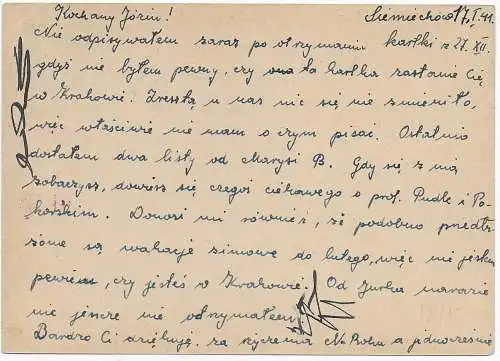 Kochany Józiu! Siemiechów 17.I.41.
Nie odpisywałem zaraz po otrzymaniu kartki z 27.XII.
gdyż nie byłem pewny, czy ta kartka zastanie Cię
w Krakowie. Zresztą u nas nic się nie zmieniło,
więc właściwie nie mam o czym pisać. Ostatnio
dostałem dwa listy od Marysi B. Gdy się z nią
zobaczysz, dowiesz się czegoś ciekawego o prof. Pudle i Po-
horskim. Donosi mi również, że podobno przedłu-
żone są wakacje zimowe do lutego, więc nie jestem
pewien, czy jesteś w Krakowie. Od Jurka narazie
nic jeszcze nie otrzymałem.
Bardzo Ci dziękuję, za życzenia N. Roku a jednocześnie